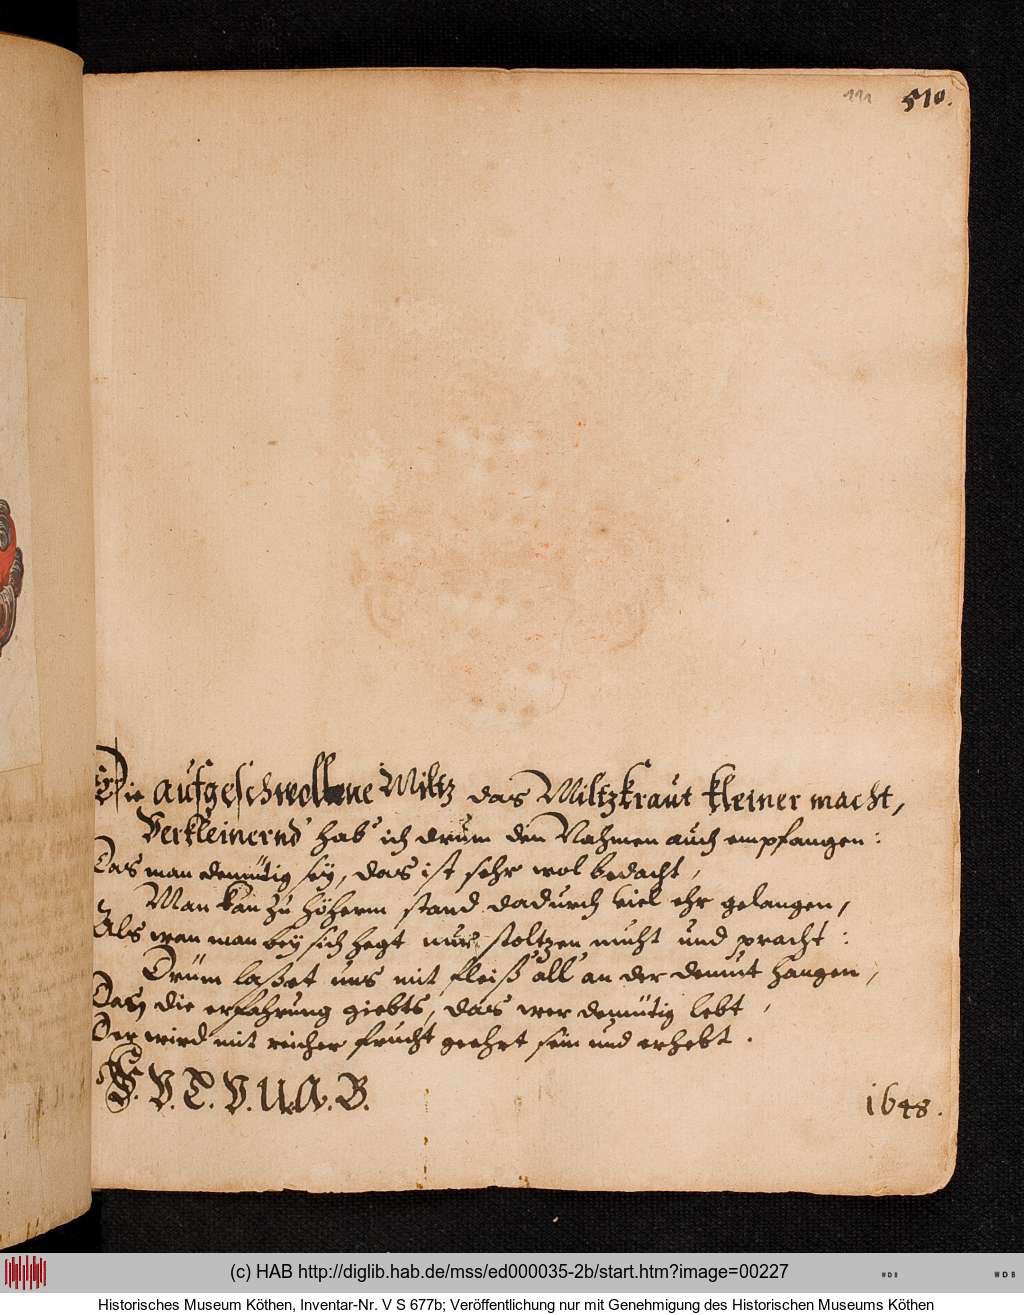 191
510.
Die aufgeschwollene Miltz das Miltzkraut kleiner macht,
Verkleinernd hab' ich drum den Nahmen auch empfangen:
Das man demütig sey, das ist sehr wol bedacht,
Man kan zu höherm stand dadurch viel ehr gelangen,
Als wan man bey sich hegt nur stoltzen muht und pracht:
Drüm laßet uns mit fleiß all' an der demut hangen,
Das die erfahrung giebts, das wer demütig lebt,
Der wird mit reicher frucht geehrt sein und erhebt.
V. T. V. U. A. B.
1648.
(c) HAB http://diglib.hab.de/mss/ed000035-2b/start.htm?image=00227
WDB
WDB
Historisches Museum Köthen, Inventar-Nr. V S 677b; Veröffentlichung nur mit Genehmigung des Historischen Museums Köthen